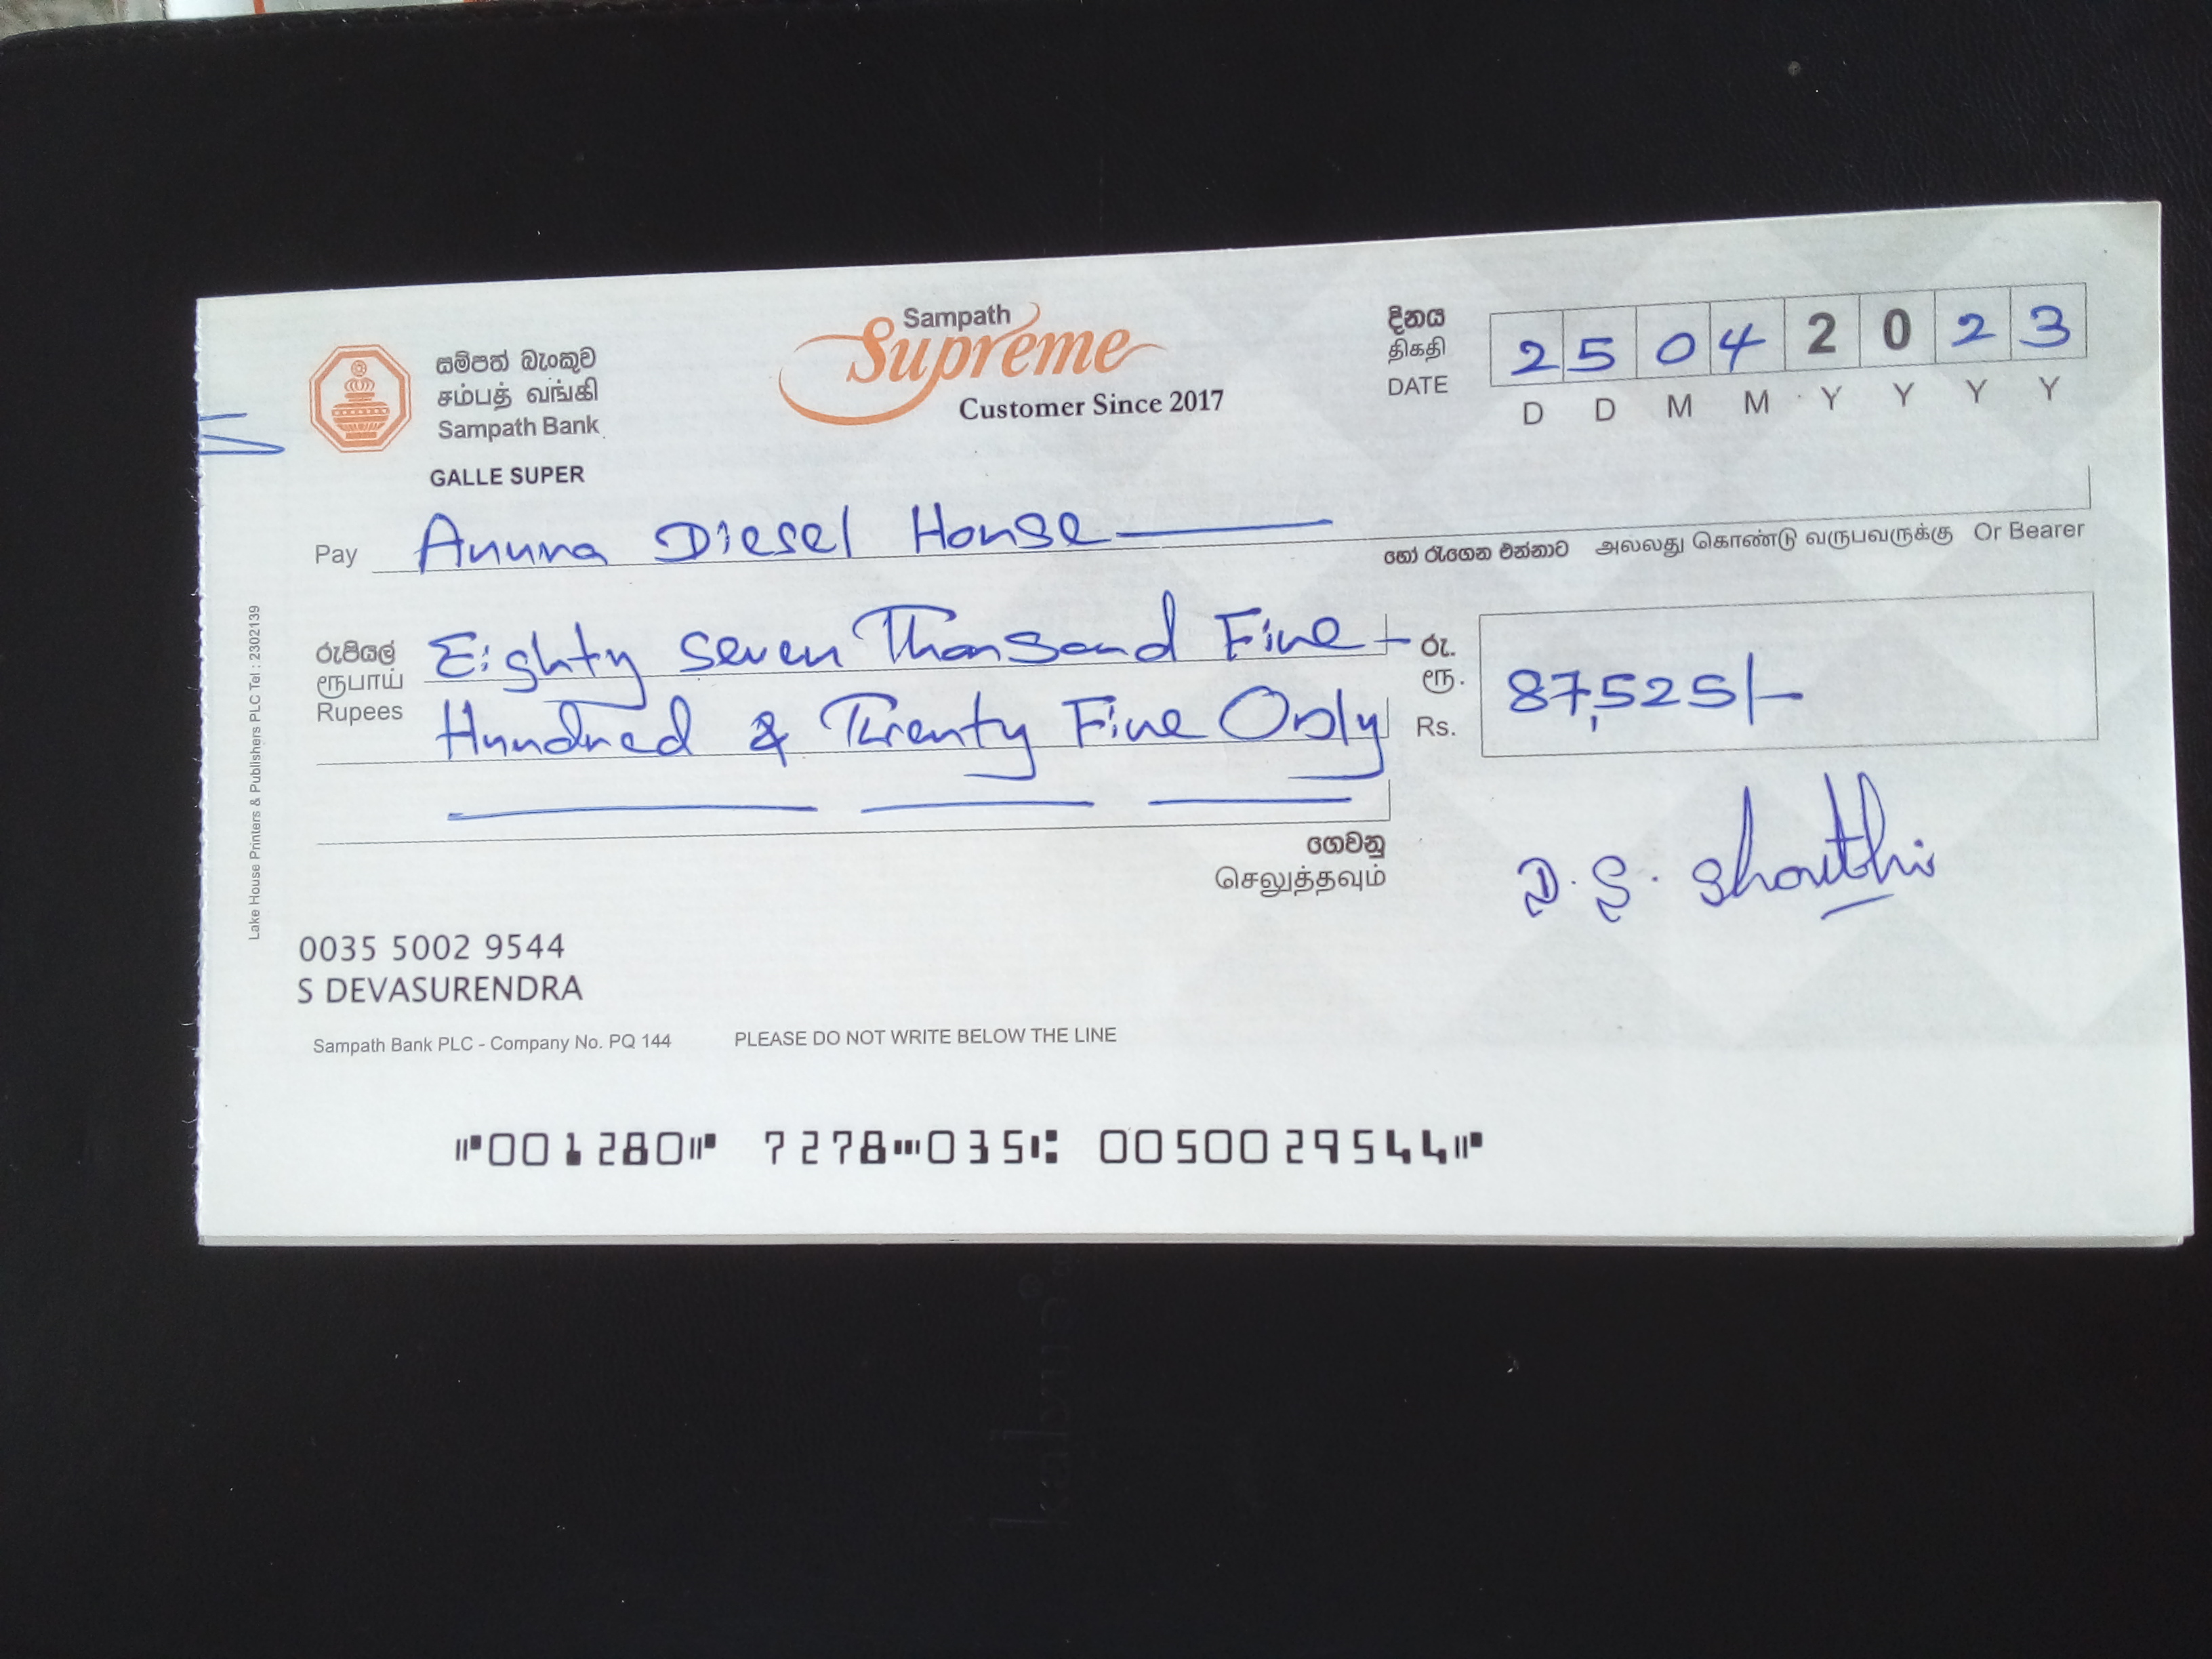 සම්පත් බැංකුව
சம்பத் வங்கி
Sampath Bank
GALLE SUPER
Sampath
Supreme
Customer Since 2017
දිනය
திகதி
DATE
2 5 0 4 2 0 2 3
D D M M Y Y Y Y
Pay Anura Diesel House
හෝ රැගෙන එන්නාට அல்லது கொண்டு வருபவருக்கு Or Bearer
රුපියල්
ரூபாய்
Rupees
Eighty Seven Thousand Five
Hundred & Twenty Five Only
රු.
ரூ.
Rs.
87,525/-
ගෙවනු
செலுத்தவும்
Lake House Printers & Publishers PLC Tel : 2302139
0035 5002 9544
S DEVASURENDRA
Sampath Bank PLC - Company No. PQ 144 PLEASE DO NOT WRITE BELOW THE LINE
⑈001280⑈ 7278⑉035⑆ 0050029544⑈